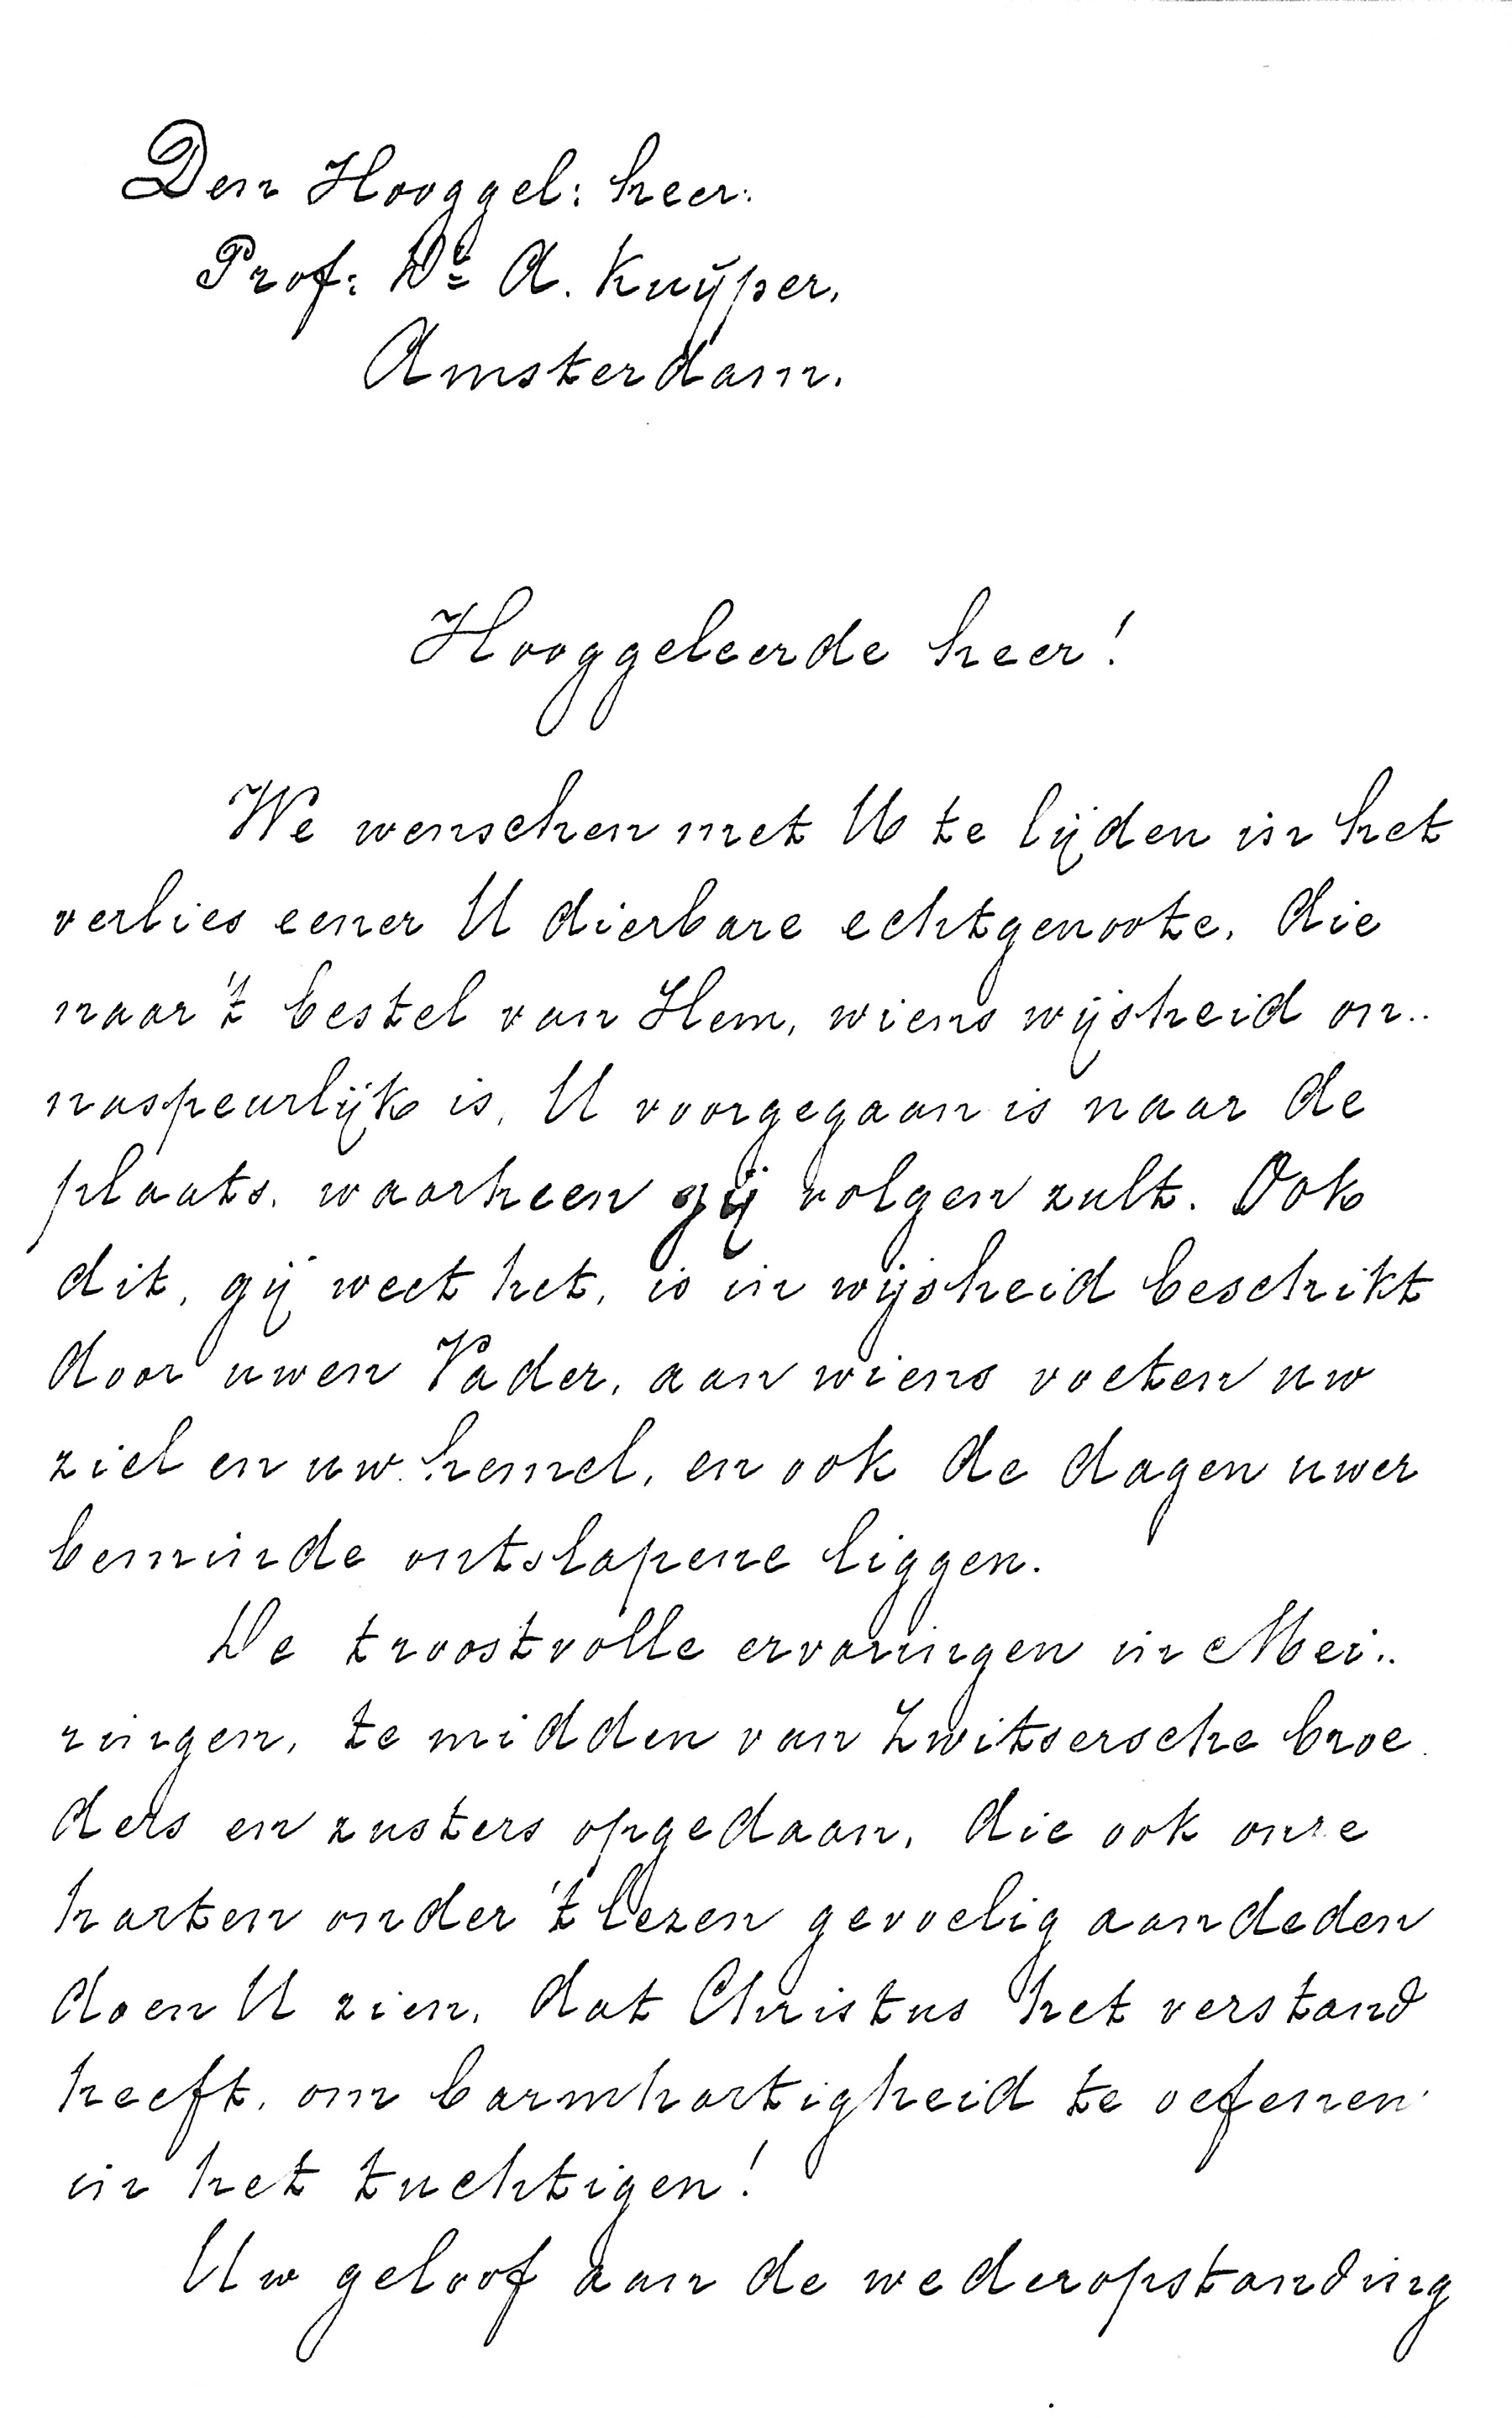 Den Hooggel: heer:
Prof: Dr A. Kuÿper,
Amsterdam.
Hooggeleerde heer!
We wenschen met U te lijden in het
verlies eener U dierbare echtgenoote, die
naar 't bestel van Hem, wiens wijsheid on..
naspeurlijk is, U voorgegaan is naar de
plaats, waarheen gij volgen zult. Ook
dit, gij weet het, is in wijsheid beschikt
door uwen Vader, aan wiens voeten uw
ziel en uw hemel, en ook de dagen uwer
beminde ontslapene liggen.
De troostvolle ervaringen in Mei..
ringen, te midden van Zwitsersche broe
ders en zusters opgedaan, die ook onze
harten onder 't lezen gevoelig aandeden
doen U zien, dat Christus het verstand
heeft, om barmhartigheid te oefenen
in het tuchtigen!
Uw geloof aan de wederopstanding